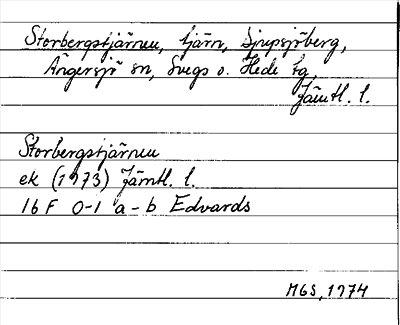 Storbergstjärnen, tjärn, Djupsjöberg,
Ängersjö sn, Svegs o. Hede tg,
Jämtl. l.
Storbergstjärnen
ek (1973) Jämtl. l.
16F 0-1 a-b Edvards
MGS, 1974